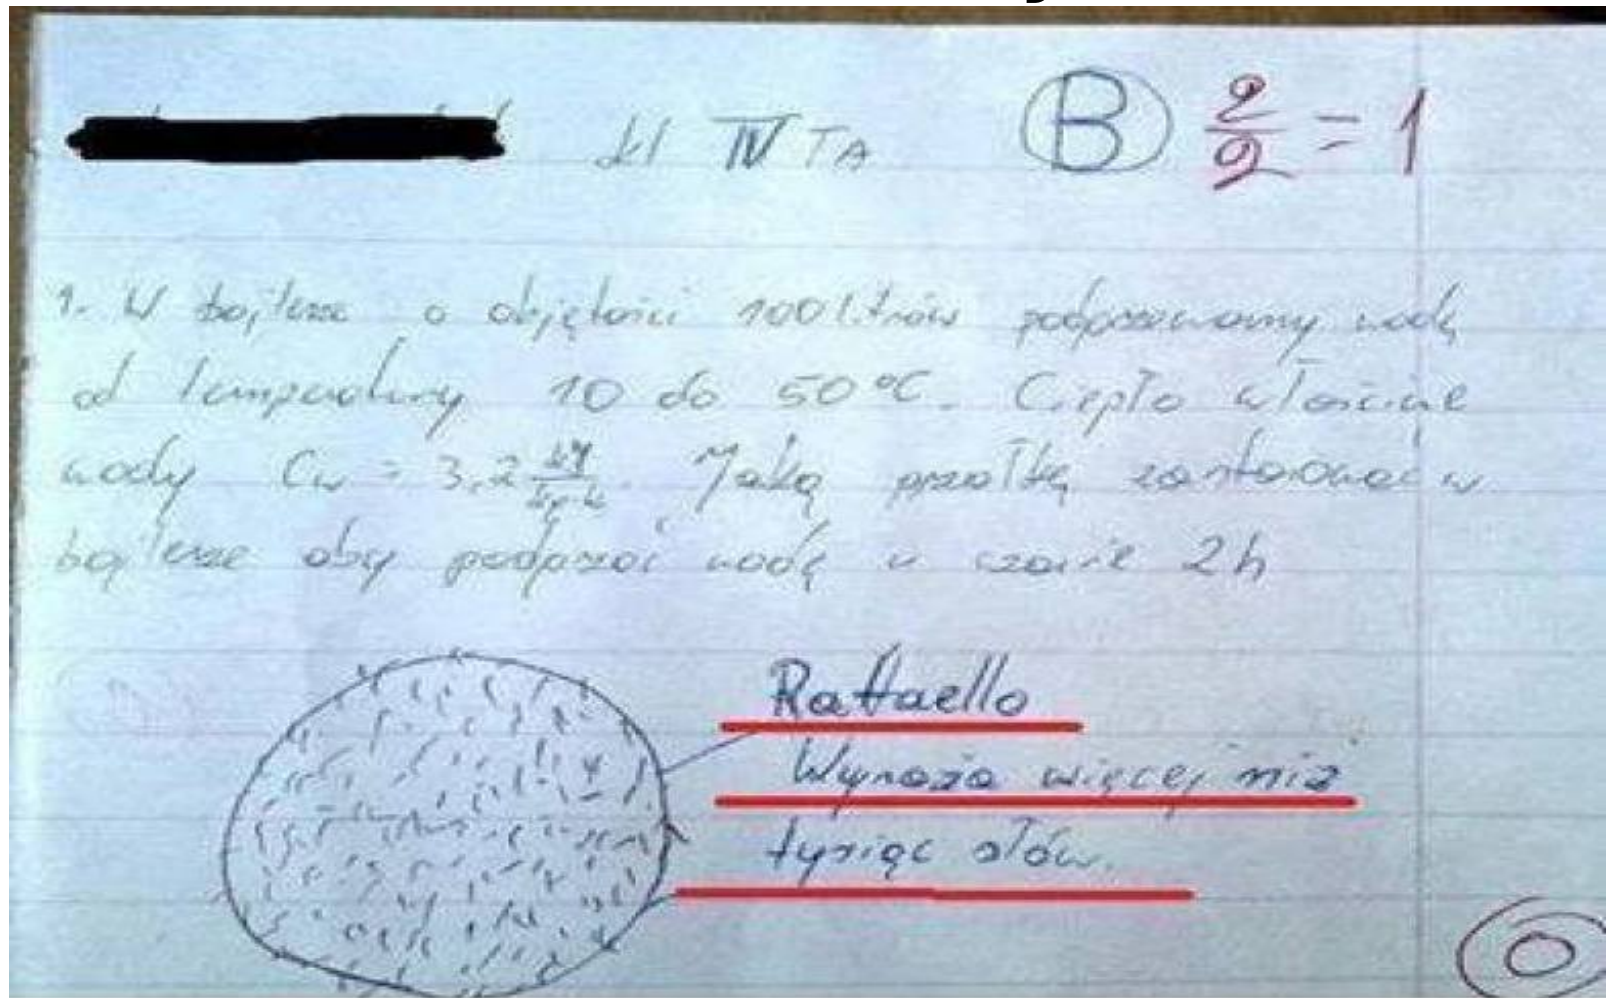 kl IV TA B 2/2 = 1
1. W bojlerze o objętości 100 litrów podgrzewamy wodę
od temperatury 10 do 50 °C. Ciepło właściwe
wody Cw = 3,2 kJ/kg·K. Jaką grzałkę zastosować w
bojlerze aby podgrzać wodę w czasie 2h
Raffaello
Wyraża więcej niż
tysiąc słów.
0